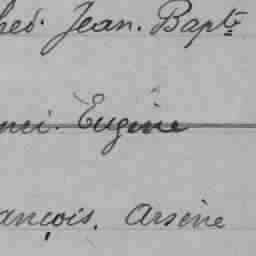 hed. Jean. Bapte
nri. Eugène
ançois. Arsène